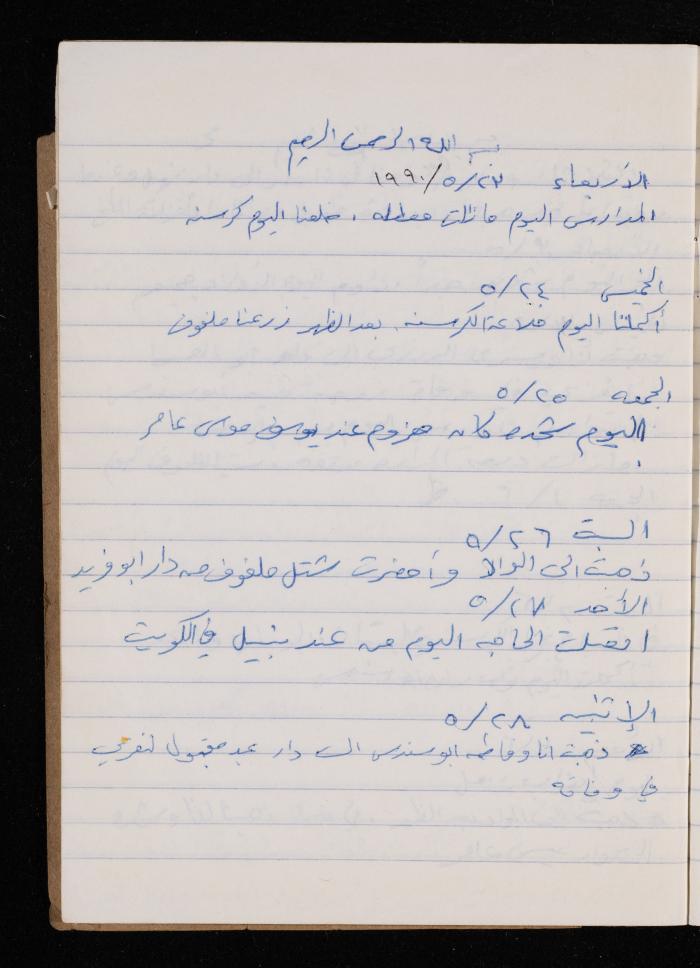 بسم الله الرحمن الرحيم
الاربعاء ٥/٢٣/١٩٩٠
المدارس اليوم مازالت معطله ، خلعنا اليوم كرسنه
الخميس ٥/٢٤
أكملنا اليوم خلاعة الكرسنه . بعد الظهر زرعنا ملفوف
الجمعه ٥/٢٥
اليوم شحده كان معزوم عند يوسف موسى عامر
السبت ٥/٢٦
ذهبت الى الولا وأحضرت شتل ملفوف من دار ابو فريد
الأحد ٥/٢٧
اتصلت الحاجه اليوم من عند نبيل في الكويت
الإثنين ٥/٢٨
ذهبت انا وفاطمه ابو سندس الى دار عبد مقبول لنعزي
في وفاته